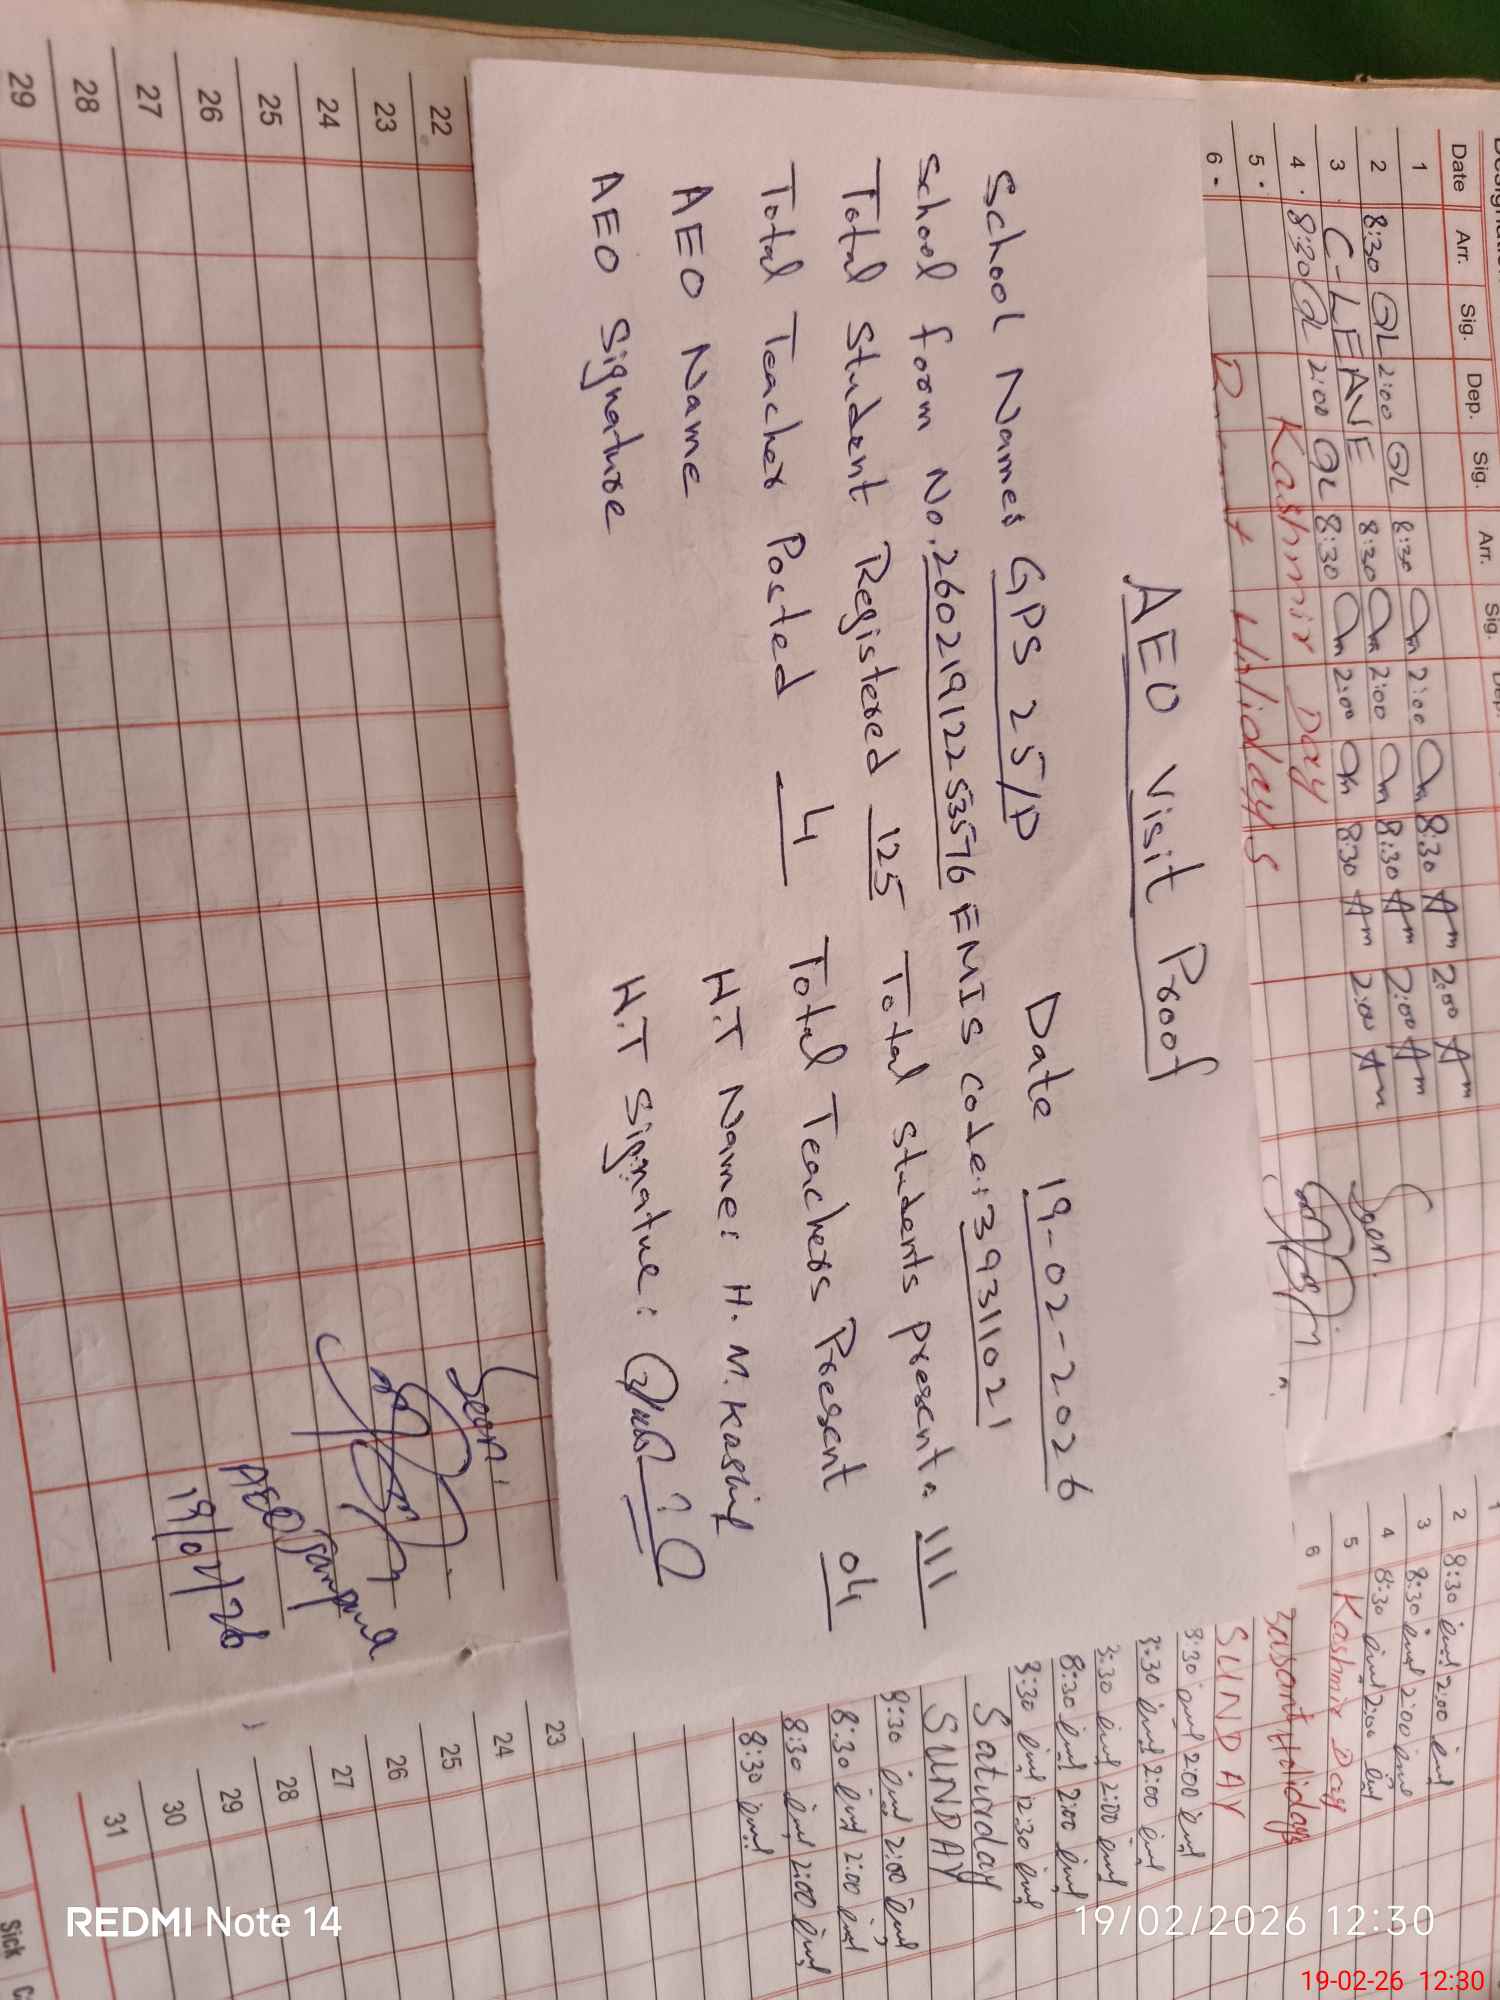 AEO Visit Proof
School Names GPS 25/P Date 19-02-2026
School form No. 26021912253576 EMIS code: 39311021
Total Student Registered 125 Total students present: 111
Total Teacher Posted 4 Total Teachers Present 04
AEO Name H.T Name: H. M. Kashif
AEO Signature H.T Signature:
Date Arr. Sig. Dep. Sig. Arr. Sig. Dep.
1 8:30 2:00 8:30 2:00
2 8:30 2:00 8:30 2:00 8:30 2:00
3 C-LEAVE 8:30 2:00 8:30 2:00
4 8:30 2:00 Kashmir Day
5
6 Holidays
Seen.
22
23
24
25
26
27
28
29
Seen.
AEO
19/02/26
2 8:30 2:00
3 8:30 2:00
4 8:30 2:00
5 Kashmir Day
6 Basant Holidays
SUNDAY
8:30 2:00
8:30 2:00
8:30 2:00
8:30 2:00
8:30 12:30
Saturday
SUNDAY
8:30 2:00
8:30 2:00
8:30 2:00
8:30
23
24
25
26
27
28
29
30
31
Sick
REDMI Note 14
19/02/2026 12:30
19-02-26 12:30